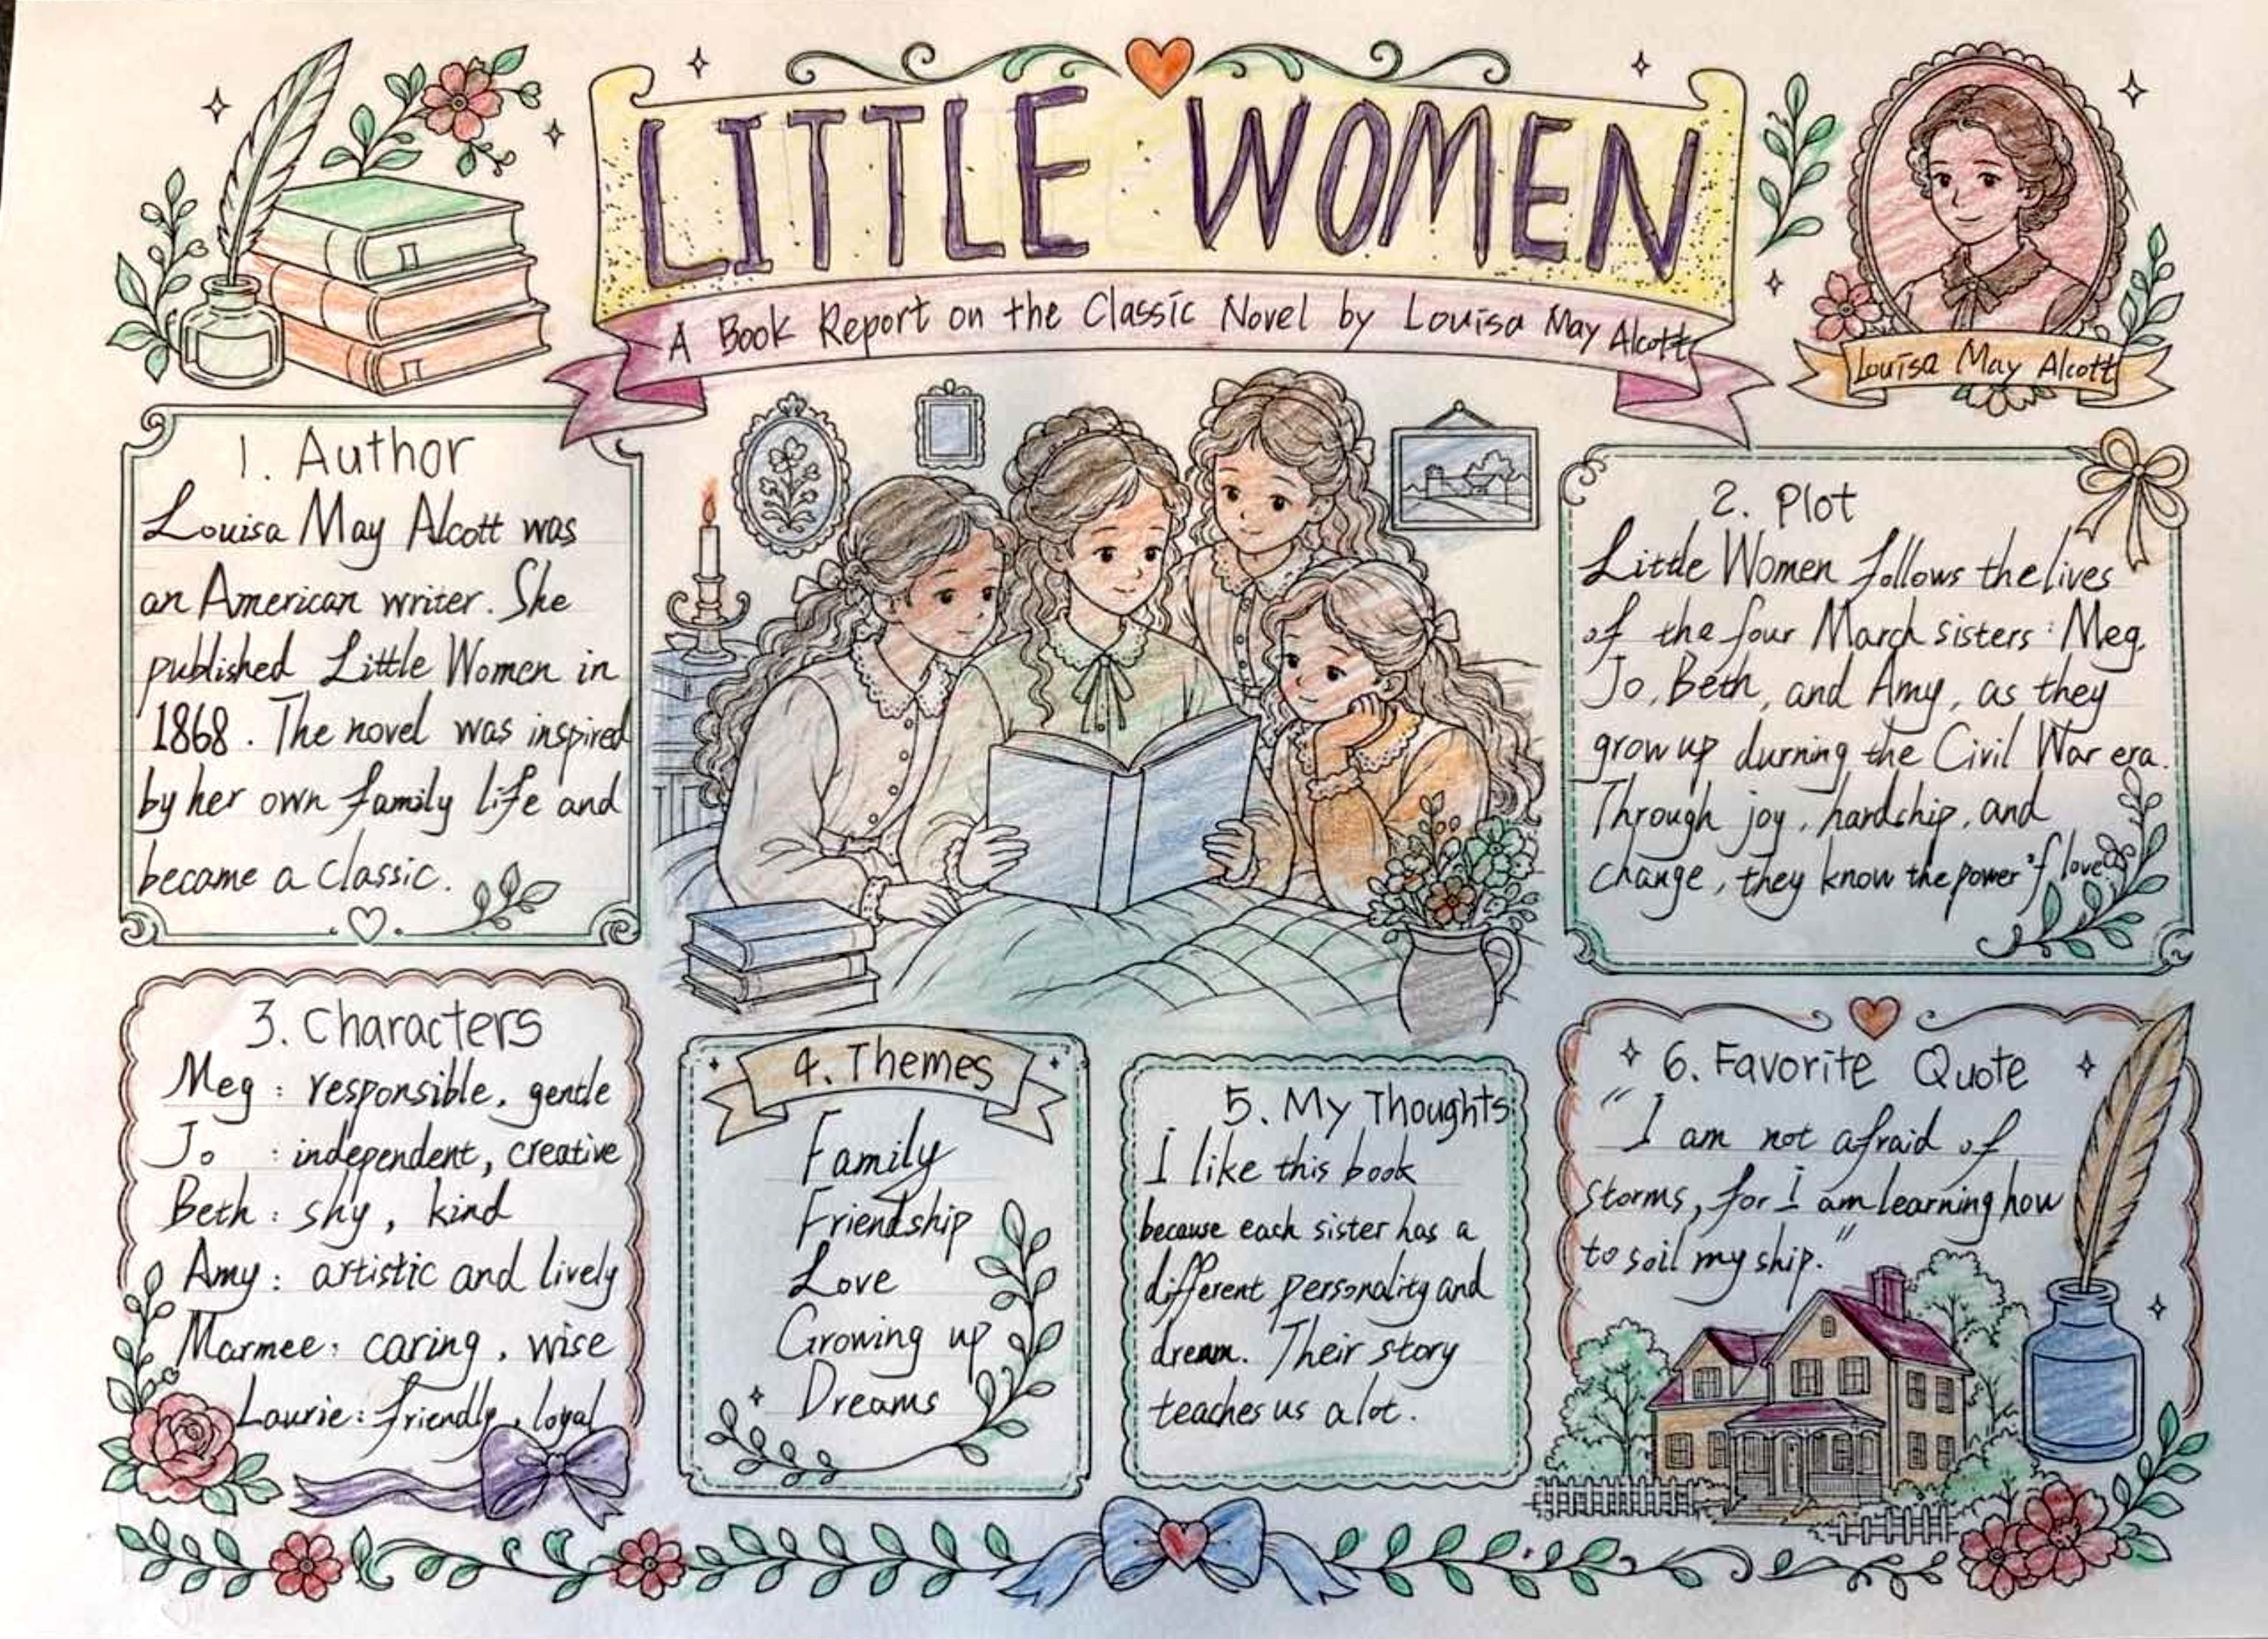 LITTLE WOMEN
A Book Report on the Classic Novel by Louisa May Alcott
Louisa May Alcott
1. Author
Louisa May Alcott was
an American writer. She
published Little Women in
1868. The novel was inspired
by her own family life and
became a classic.
2. Plot
Little Women follows the lives
of the four March sisters: Meg,
Jo, Beth, and Amy, as they
grow up durning the Civil War era.
Through joy, hardship, and
change, they know the power of love.
3. Characters
Meg: responsible, gentle
Jo : independent, creative
Beth: shy, kind
Amy: artistic and lively
Marmee: caring, wise
Laurie: friendly, loyal
4. Themes
Family
Friendship
Love
Growing up
Dreams
5. My Thoughts
I like this book
because each sister has a
different personality and
dream. Their story
teaches us a lot.
6. Favorite Quote
"I am not afraid of
storms, for I am learning how
to soil my ship."